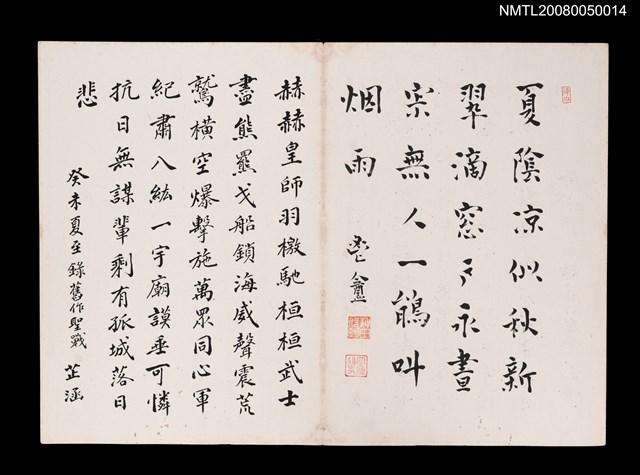 NMTL20080050014
夏陰凉似秋新
翠滴窓々永晝
寀無人一鵃叫
烟雨
赫赫皇師羽檄馳桓桓武士
盡熊羆戈船鎖海威聲震荒
鷲橫空爆擊施萬眾同心軍
紀肅八紘一宇廟謨垂可憐
抗日無謀輩剩有孤城落日
悲
癸未夏至錄舊作聖戰 芷涵